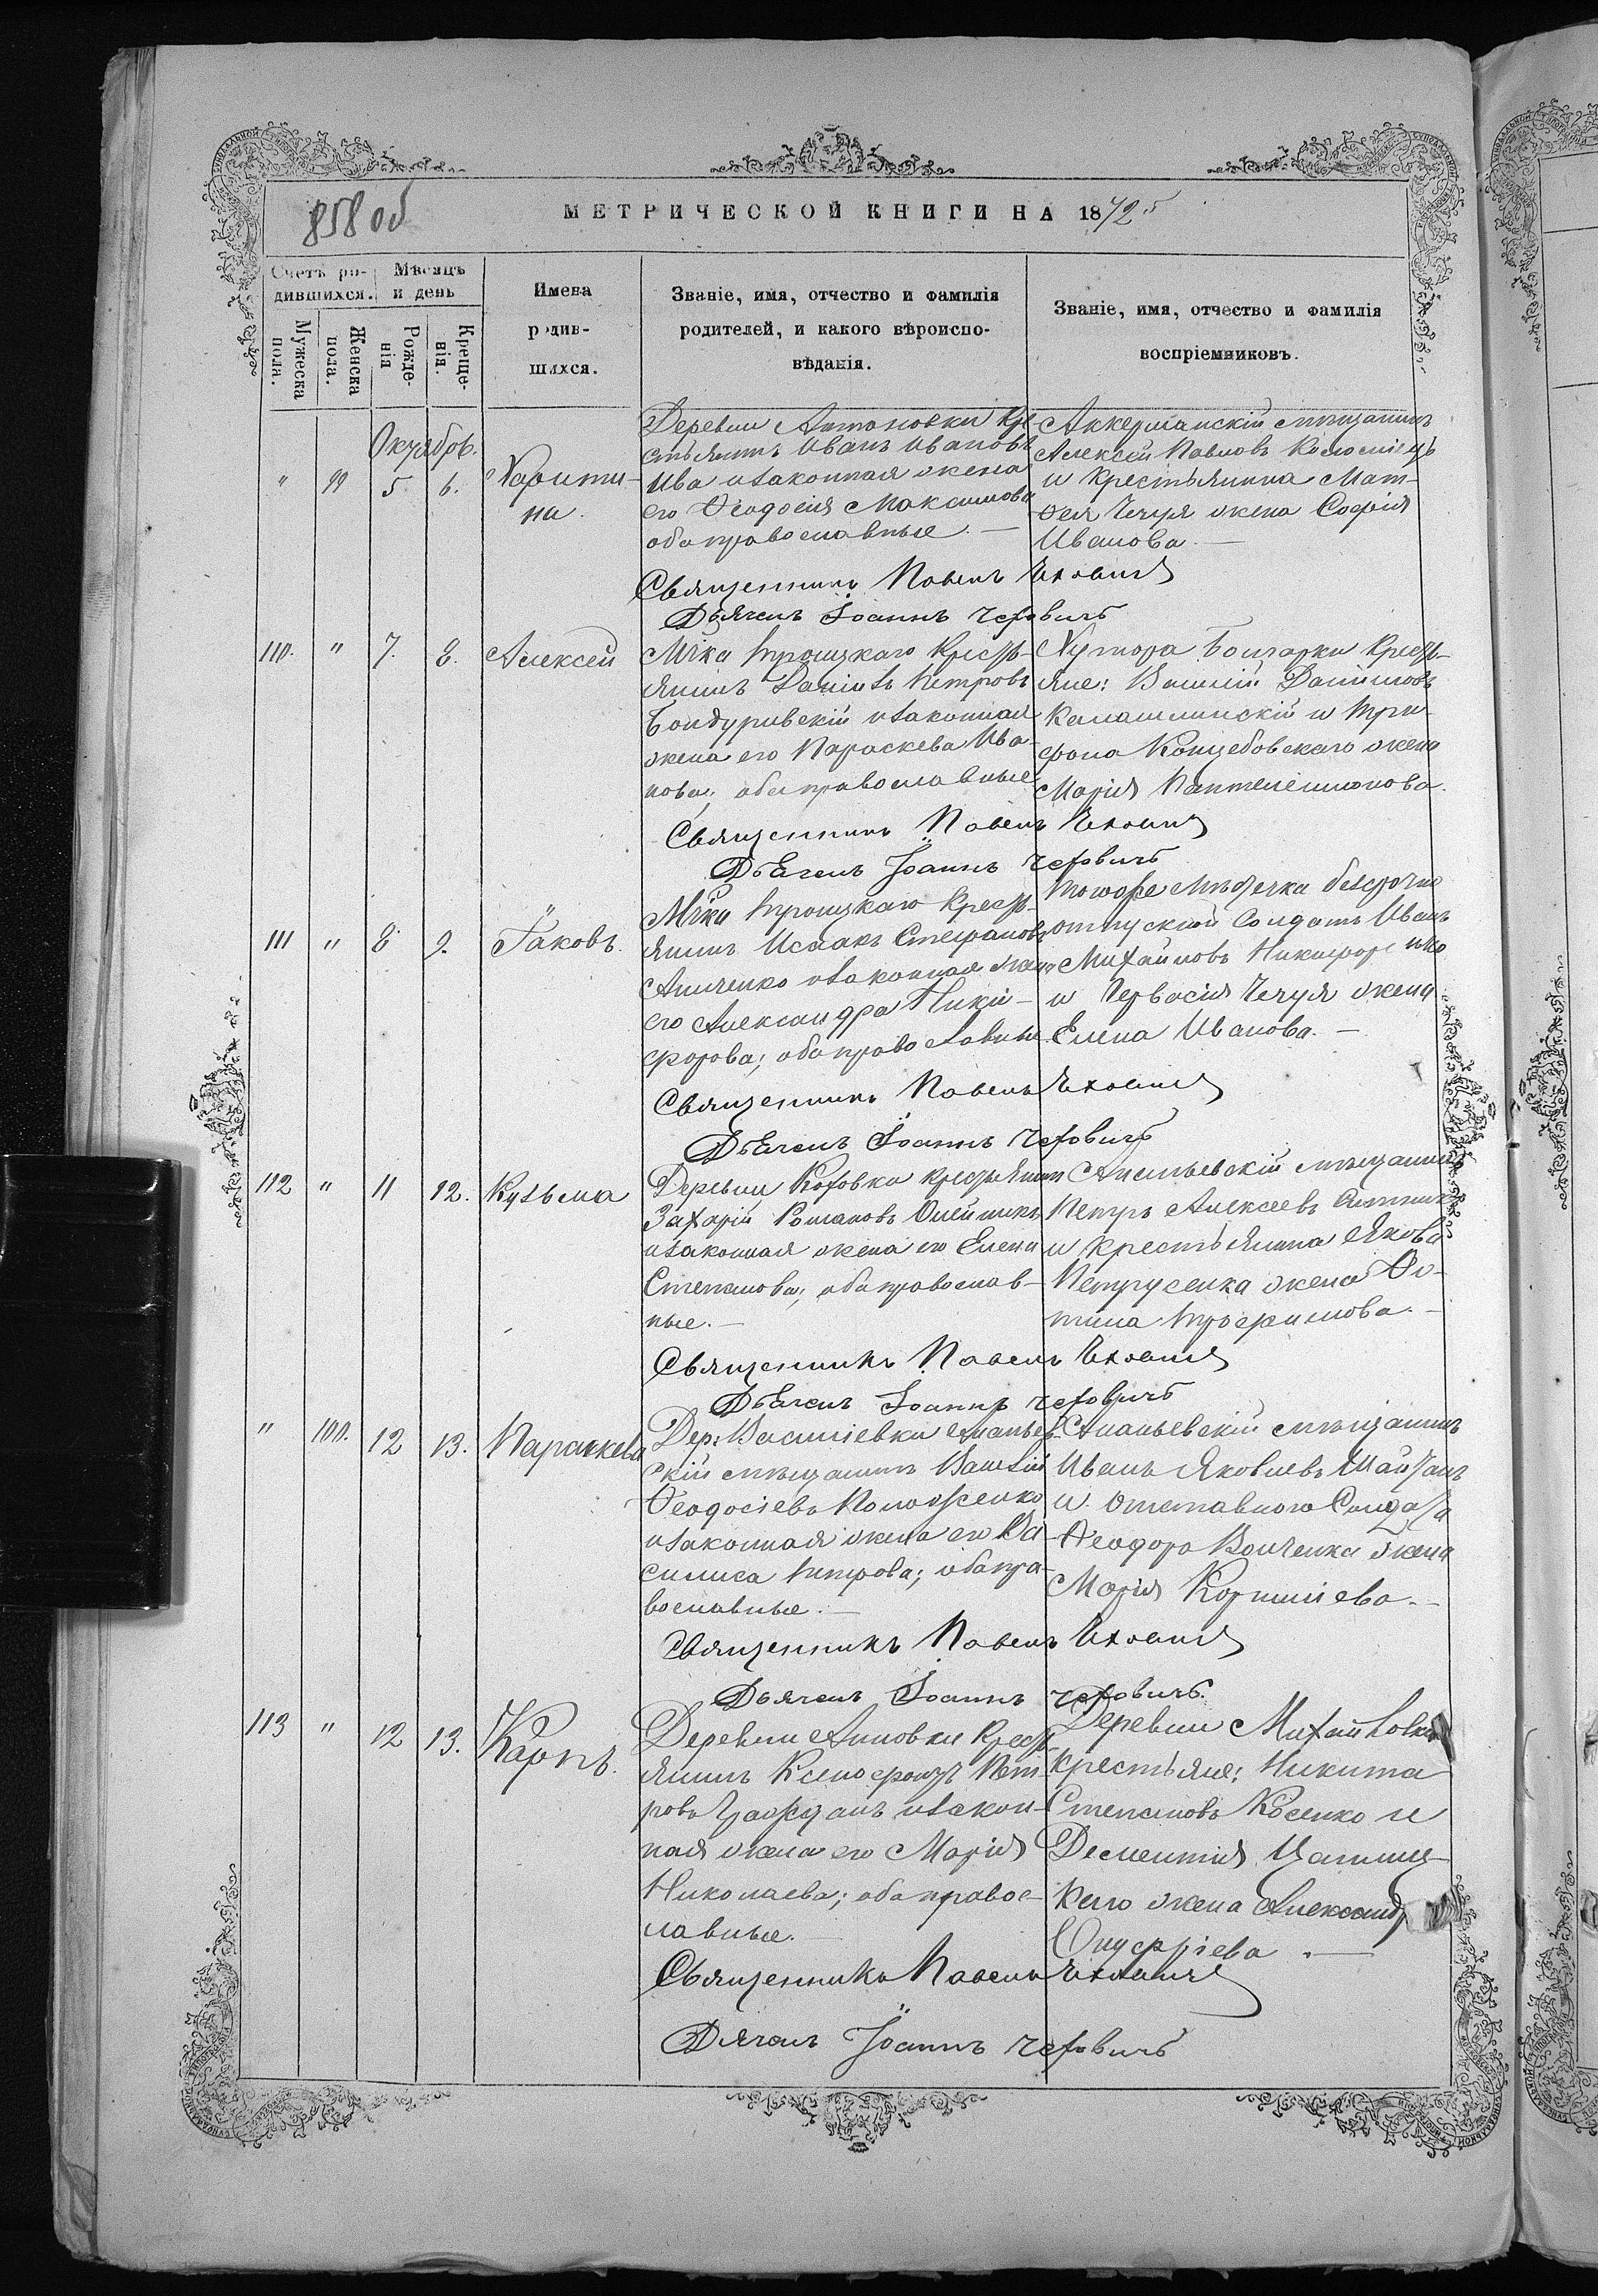 858 об
МЕТРИЧЕСКОЙ КНИГИ НА 1872
Счетъ ро-
дившихся.
Мѣсяцъ
и день
Мужеска
пола.
Женска
пола.
Рожде-
нія
Креще-
нія.
Имена
родив-
шихся.
Званіе, имя, отчество и фамилія
родителей, и какого вѣроиспо-
вѣданія.
Званіе, имя, отчество и фамилія
воспріемниковъ.
Октябрь.
" 99 5 6. Харити-
на.
Деревни Антоновки Кре
стьянинъ Иванъ Ивановъ
Ива изаконная жена
его Ѳеодосія Максимова
оба православные. —
Аккерманскій мѣщанинъ
Алексей Павловъ Коломіецъ
и Крестьянина Мат-
ѳея Чечуя жена Софія
Иванова. —
Священникъ Павелъ
Дьячекъ Іоаннъ
110. " 7. 8. Алексей
Мѣчка Троицкаго Кресть-
янинъ Даніилъ Петровъ
Бондуривскій изаконная
жена его Параскева Ива-
нова; оба православные
Хутора Бончарки Кресть-
яне: Василій Даніиловъ
Калашлинскій и Три-
фона Концебовскаго жена
Марія Пантелеимонова.
Священникъ Павелъ
Дьячекъ Іоаннъ
111 " 8 9. Іаковъ.
Мѣчка Троицкаго Кресть-
янинъ Исаакъ Стефановъ
изаконная жена
его Александра Ники-
форова; оба православные
Тогоже Мѣстечка безсрочно
отпускной Солдатъ Иванъ
Михайловъ Никифоренко
и Гервасія Чечуя жена
Елена Иванова. —
Священникъ Павелъ
Дьячекъ Іоаннъ
112 " 11 12. Кузьма
Деревни Котовки крестьянинъ
Захарій Романовъ Олейникъ
изаконная жена его Елена
Степанова; оба православ-
ные. —
Ананьевскій мѣщанинъ
Петръ Алексеевъ
и крестьянина Якова
Петрусенка жена Фо-
тина Трофимова. —
Священникъ Павелъ
Дьячекъ Іоаннъ
" 100. 12 13. Параскева
Дер: Василіевки Ананьев-
скій мѣщанинъ Василій
Ѳеодосіевъ Положенко
изаконная жена его Ва-
силиса Петрова; оба пра-
вославные. —
Ананьевскій мѣщанинъ
Иванъ Яковлевъ Шайтанъ
и отставного Солдата
Ѳеодора Волченка жена
Марія Корниліева. —
Священникъ Павелъ
Дьячекъ Іоаннъ
113 " 12 13. Карпъ.
Деревни Анновки Кресть-
янинъ Ксенофонтъ Пет-
ровъ изакон-
ная жена его Марія
Николаева; оба правос-
лавные. —
Деревни Михайловки
крестьяне: Никита
Степановъ Косенко и
Дементія
каго жена Александр
Онуфріева. —
Священникъ Павелъ
Дьячекъ Іоаннъ